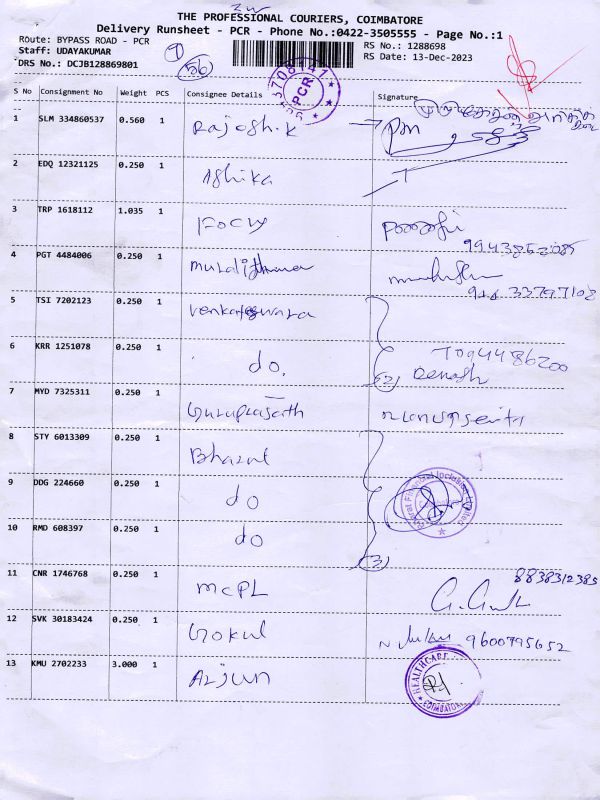 THE PROFESSIONAL COURIERS, COIMBATORE
Delivery Runsheet - PCR - Phone No.:0422-3505555 - Page No.:1
Route: BYPASS ROAD - PCR
RS No.: 1288698
Staff: UDAYAKUMAR
RS Date: 13-Dec-2023
DRS No.: DCJB128869801
1
56
3708141
PCR
S No Consignment No Weight PCS Consignee Details Signature
1 SLM 334860537 0.560 1 Rajesh.K
2 EDQ 12321125 0.250 1 Ashika
3 TRP 1618112 1.035 1
4 PGT 4484006 0.250 1
5 TSI 7202123 0.250 1 Venkateswara
6 KRR 1251078 0.250 1 do. Denesh
(2)
7 MYD 7325311 0.250 1 Guruprasath
8 STY 6013309 0.250 1 Bharat
9 DDG 224660 0.250 1 do
10 RMD 608397 0.250 1 do
(3)
11 CNR 1746768 0.250 1 MCPL 8838312385
12 SVK 30183424 0.250 1 Gokul 9600795652
13 KMU 2702233 3.000 1 Arjun
HEALTHCARE
COIMBATORE